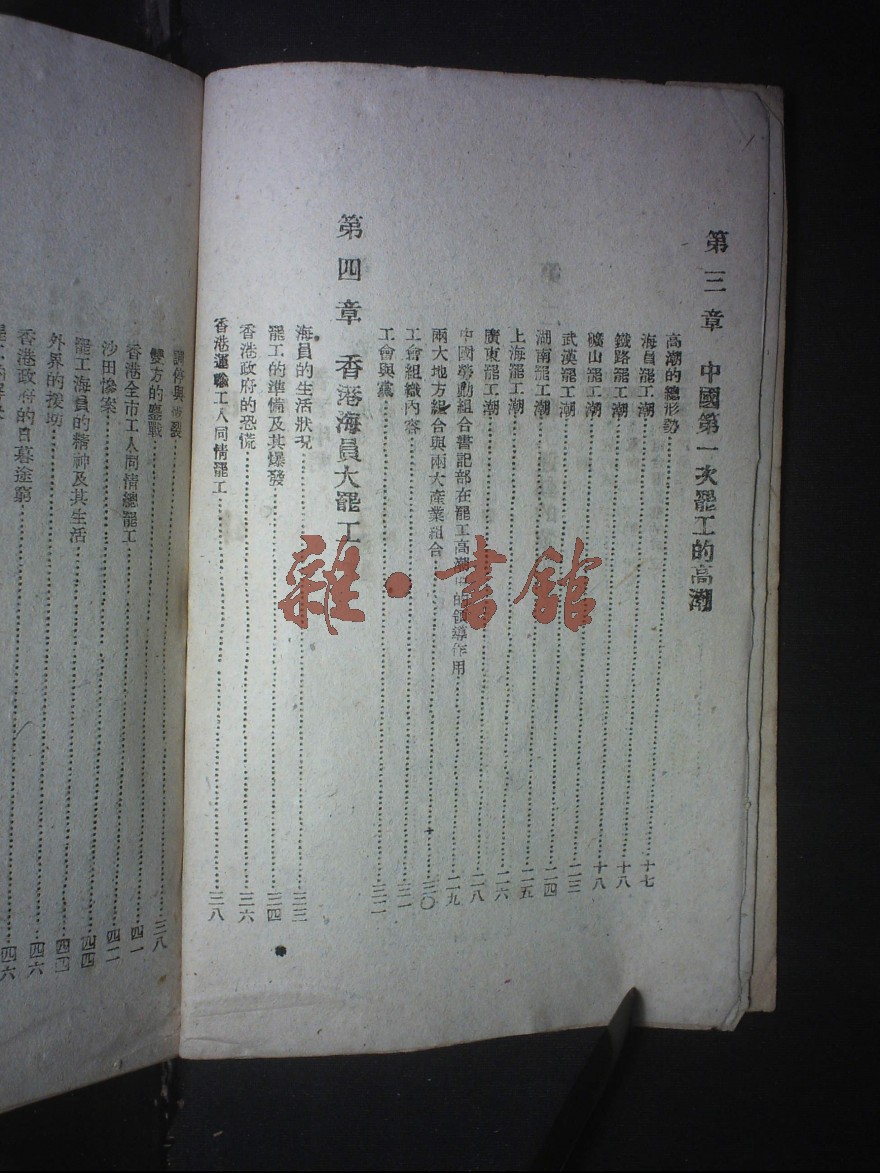 第三章 中國第一次罷工的高潮
高潮的總形勢……十七
海員罷工潮……十八
鐵路罷工潮……十八
礦山罷工潮……十八
武漢罷工潮……二三
湖南罷工潮……二四
上海罷工潮……二五
廣東罷工潮……二六
中國勞動組合書記部在罷工高潮中的領導作用……二八
兩大地方組合與兩大產業組合……二九
工會組織內容……三〇
工會與黨……三二
第四章 香港海員大罷工
海員的生活狀况……三三
罷工的準備及其爆發……三四
香港政府的恐慌……三六
香港運輸工人同情罷工……三八
調停與破裂……三八
雙方的鏖戰……四一
香港全市工人同情總罷工……四二
沙田慘案……四四
罷工海員的精神及其生活……四四
外界的援助……四六
香港政府的日暮途窮……四六
雜·書館